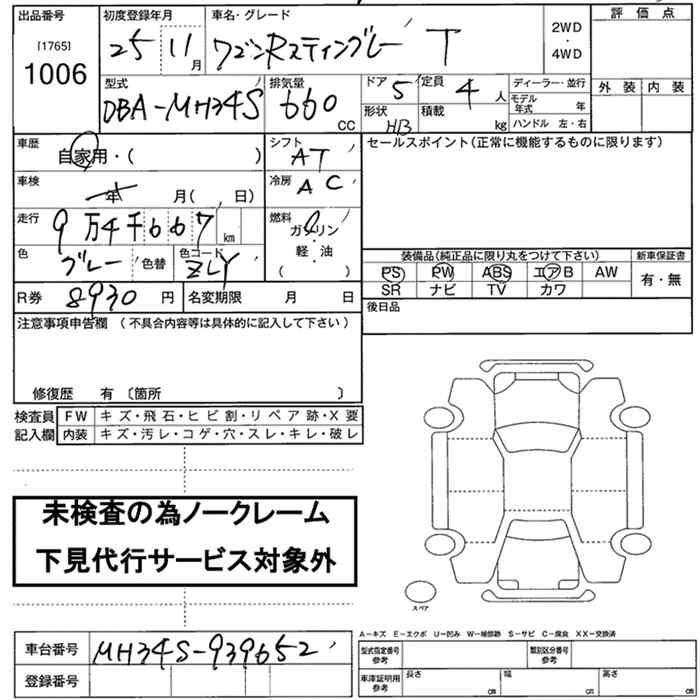 出品番号 初度登録年月 車名・グレード 評価点
[1765] 1006 25 11月 ワゴンRスティングレー T 2WD・4WD
型式 排気量 ドア 5 定員 4人 ディーラー・並行 外装 内装
DBA-MH34S 660CC 形状 HB 積載 kg モデル年式 年
ハンドル 左・右
車歴 自家用・( ) シフト AT セールスポイント(正常に機能するものに限ります)
車検 年 月( 日) 冷房 AC
走行 9万4千667km 燃料 ガソリン
軽・油
( )
色 ブルー 色替 色コード ZLY
装備品(純正品に限り丸をつけて下さい) 新車保証書
PS PW ABS エアB AW 有・無
SR ナビ TV カワ
R券 8930円 名変期限 月 日 後日品
注意事項申告欄 (不具合内容等は具体的に記入して下さい)
修復歴 有 〔箇所 〕
検査員 FW キズ・飛石・ヒビ割・リペア跡・X要
記入欄 内装 キズ・汚レ・コゲ・穴・スレ・キレ・破レ
未検査の為ノークレーム
下見代行サービス対象外
スペア
A-キズ E-エクボ U-凹み W-補修跡 S-サビ C-腐食 XX-交換済
車台番号 MH34S-939652
登録番号
型式指定番号 参考 類別区分番号 参考
車庫証明用 参考 長さ cm 幅 cm 高さ cm